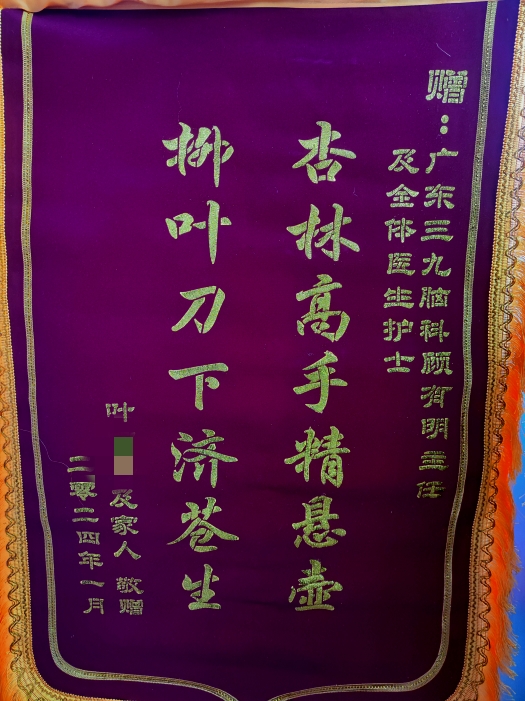 赠：广东三九脑科顾有明主任
及全体医生护士
杏林高手精悬壶
柳叶刀下济苍生
叶
及家人 敬赠
二零二四年一月